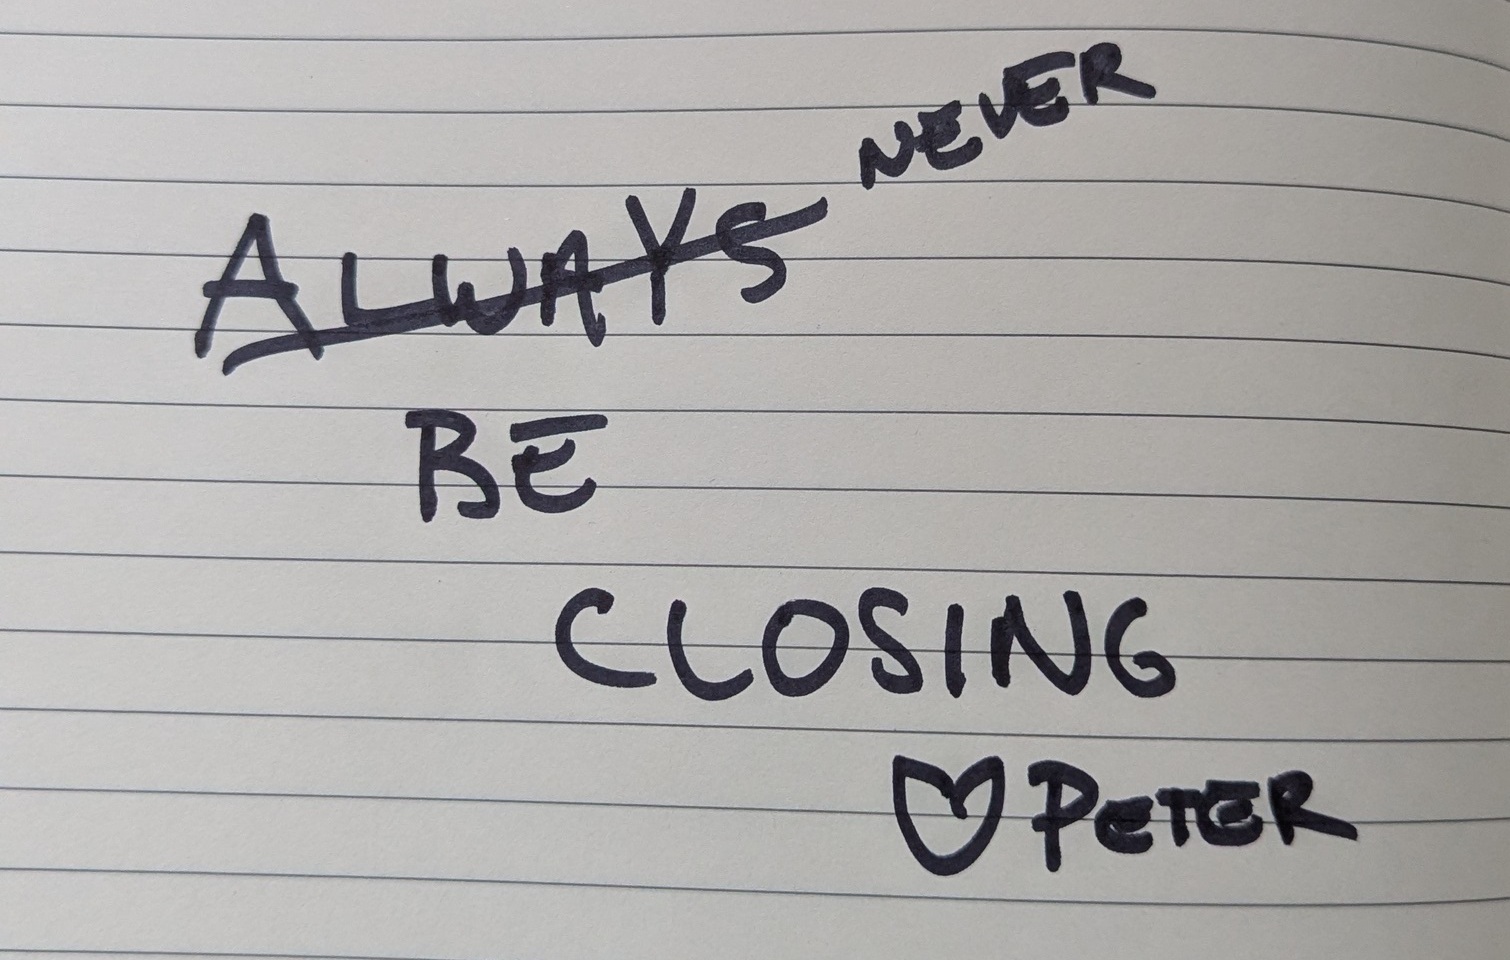 NEVER
ALWAYS
BE
CLOSING
♡ PETER